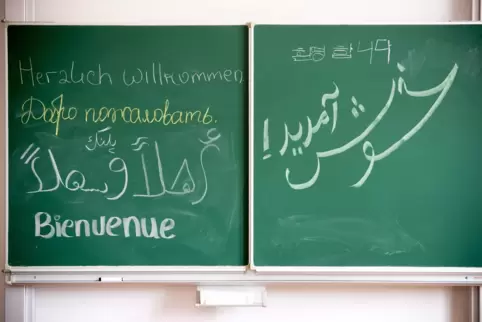 Herzlich willkommen
Добро пожаловать.
أهلاً وسهلاً
Bienvenue
환영 합니다
خوش آمدید !